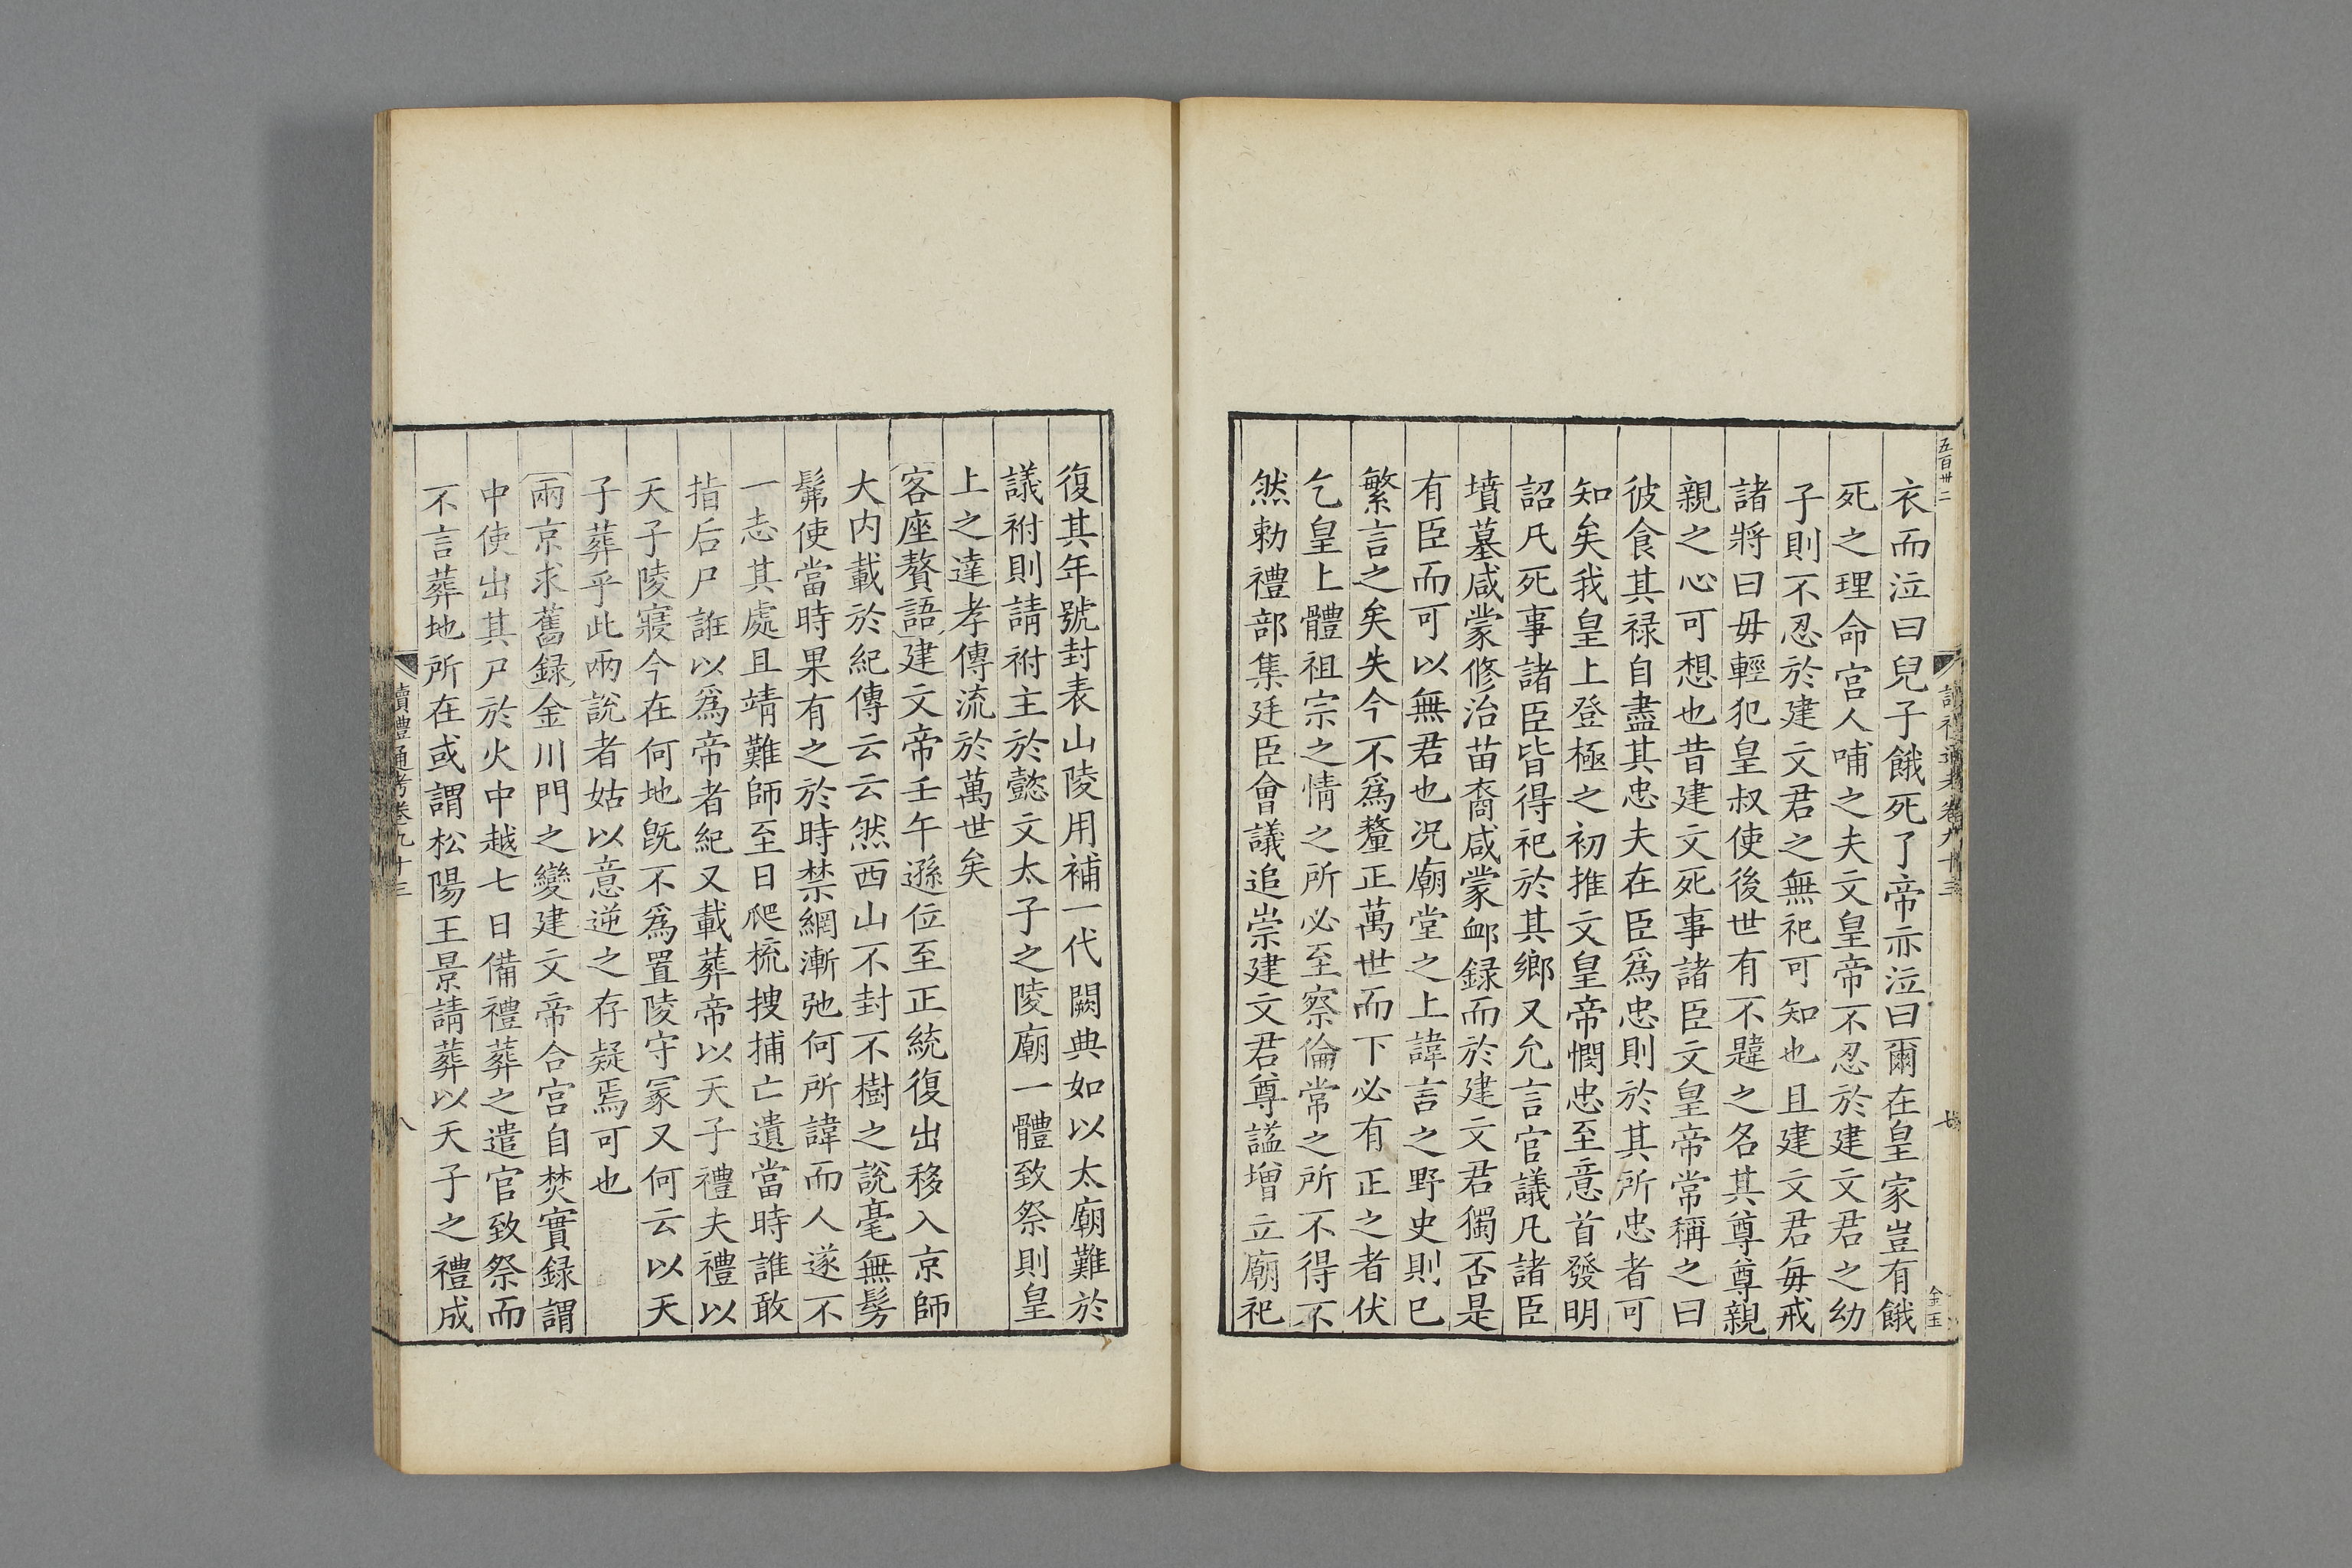 五百卅二
讀禮通考卷九十三
七
金玉
衣而泣曰兒子餓死了帝亦泣曰爾在皇家豈有餓
死之理命宮人哺之夫文皇帝不忍於建文君之幼
子則不忍於建文君之無祀可知也且建文君每戒
諸將曰毋輕犯皇叔使後世有不韙之名其尊尊親
親之心可想也昔建文死事諸臣文皇帝常稱之曰
彼食其祿自盡其忠夫在臣爲忠則於其所忠者可
知矣我皇上登極之初推文皇帝憫忠至意首發明
詔凡死事諸臣皆得祀於其鄉又允言官議凡諸臣
墳墓咸蒙修治苗裔咸蒙卹録而於建文君獨否是
有臣而可以無君也况廟堂之上諱言之野史則已
繁言之矣失今不爲釐正萬世而下必有正之者伏
乞皇上體祖宗之情之所必至察倫常之所不得不
然勅禮部集廷臣會議追崇建文君尊諡增立廟祀
復其年號封表山陵用補一代闕典如以太廟難於
議祔則請祔主於懿文太子之陵廟一體致祭則皇
上之達孝傳流於萬世矣
客座贅語建文帝壬午遜位至正統復出移入京師
大内載於紀傳云云然西山不封不樹之說毫無髣
髴使當時果有之於時禁網漸弛何所諱而人遂不
一志其處且靖難師至日爬梳搜捕亡遺當時誰敢
指后尸誑以爲帝者紀又載葬帝以天子禮夫禮以
天子陵寢今在何地旣不爲置陵守冢又何云以天
子葬乎此兩說者姑以意逆之存疑焉可也
兩京求舊録金川門之變建文帝合宮自焚實録謂
中使出其尸於火中越七日備禮葬之遣官致祭而
不言葬地所在或謂松陽王景請葬以天子之禮成
讀禮通考卷九十三
八